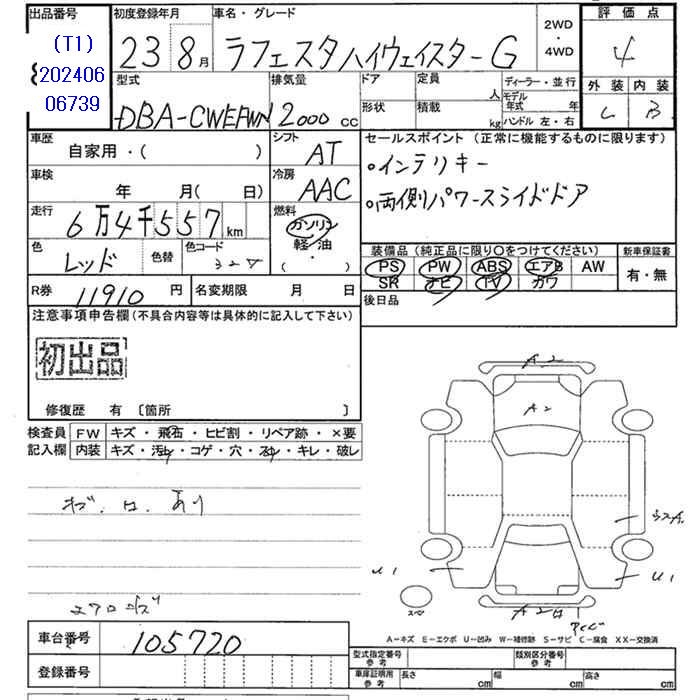 出品番号
(T1)
202406
06739
初度登録年月
23 8月
車名・グレード
ラフェスタハイウェイスターG
2WD
・
4WD
評価点
4
外装 内装
C B
型式
DBA-CWEFWN
排気量
2000 CC
ドア
形状
定員
人
積載
kg
ディーラー・並行
モデル年式 年
ハンドル 左・右
車歴
自家用・( )
シフト
AT
車検
年 月( 日)
冷房
AAC
走行
6万4千557km
燃料
ガソリン
軽・油
・
( )
色
レッド
色替
色コード
R券
11910円
名変期限 月 日
セールスポイント(正常に機能するものに限ります)
・インテリキー
・両側パワースライドドア
装備品(純正品に限り○をつけてください)
新車保証書
PS PW ABS エアB AW
SR ナビ TV カワ
有・無
後日品
注意事項申告欄(不具合内容等は具体的に記入して下さい)
初出品
修復歴 有 〔箇所 〕
検査員
記入欄
FW キズ・飛石・ヒビ割・リペア跡・×要
内装 キズ・汚れ・コゲ・穴・スレ・キレ・破レ
あり
A2
A2
U1
U1
A2
A-キズ E-エクボ U-凹み W-補修跡 S-サビ C-腐食 XX-交換済
車台番号
105720
登録番号
型式指定番号
参考
類別区分番号
参考
車庫証明用
参考
長さ cm 幅 cm 高さ cm